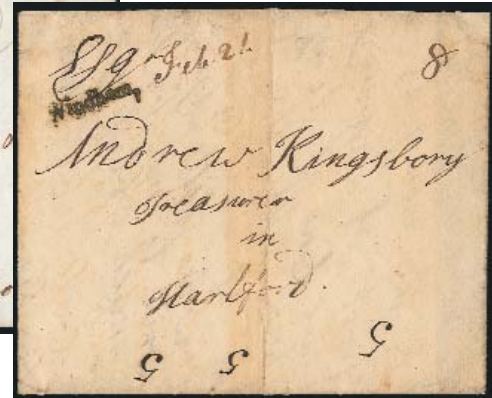 Esqr Feb 21 8
Windham,
Andrew Kingsbory
Treasurer
in
Hartford.
5 5 5